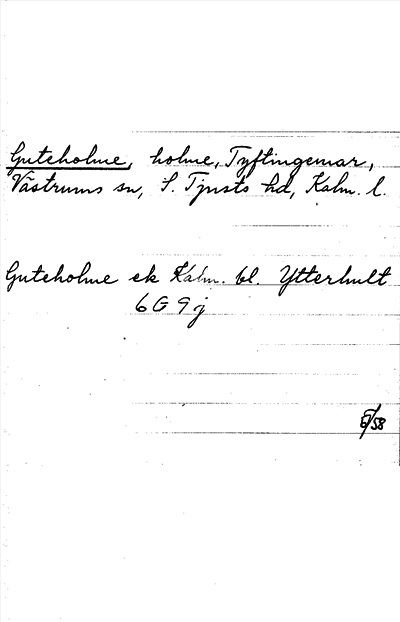 Guteholme, holme, Tyftingemar,
Västrums sn, S. Tjusts hd, Kalm. l.
Guteholme ek Kalm. bl. Ytterhult
6G9j
/58